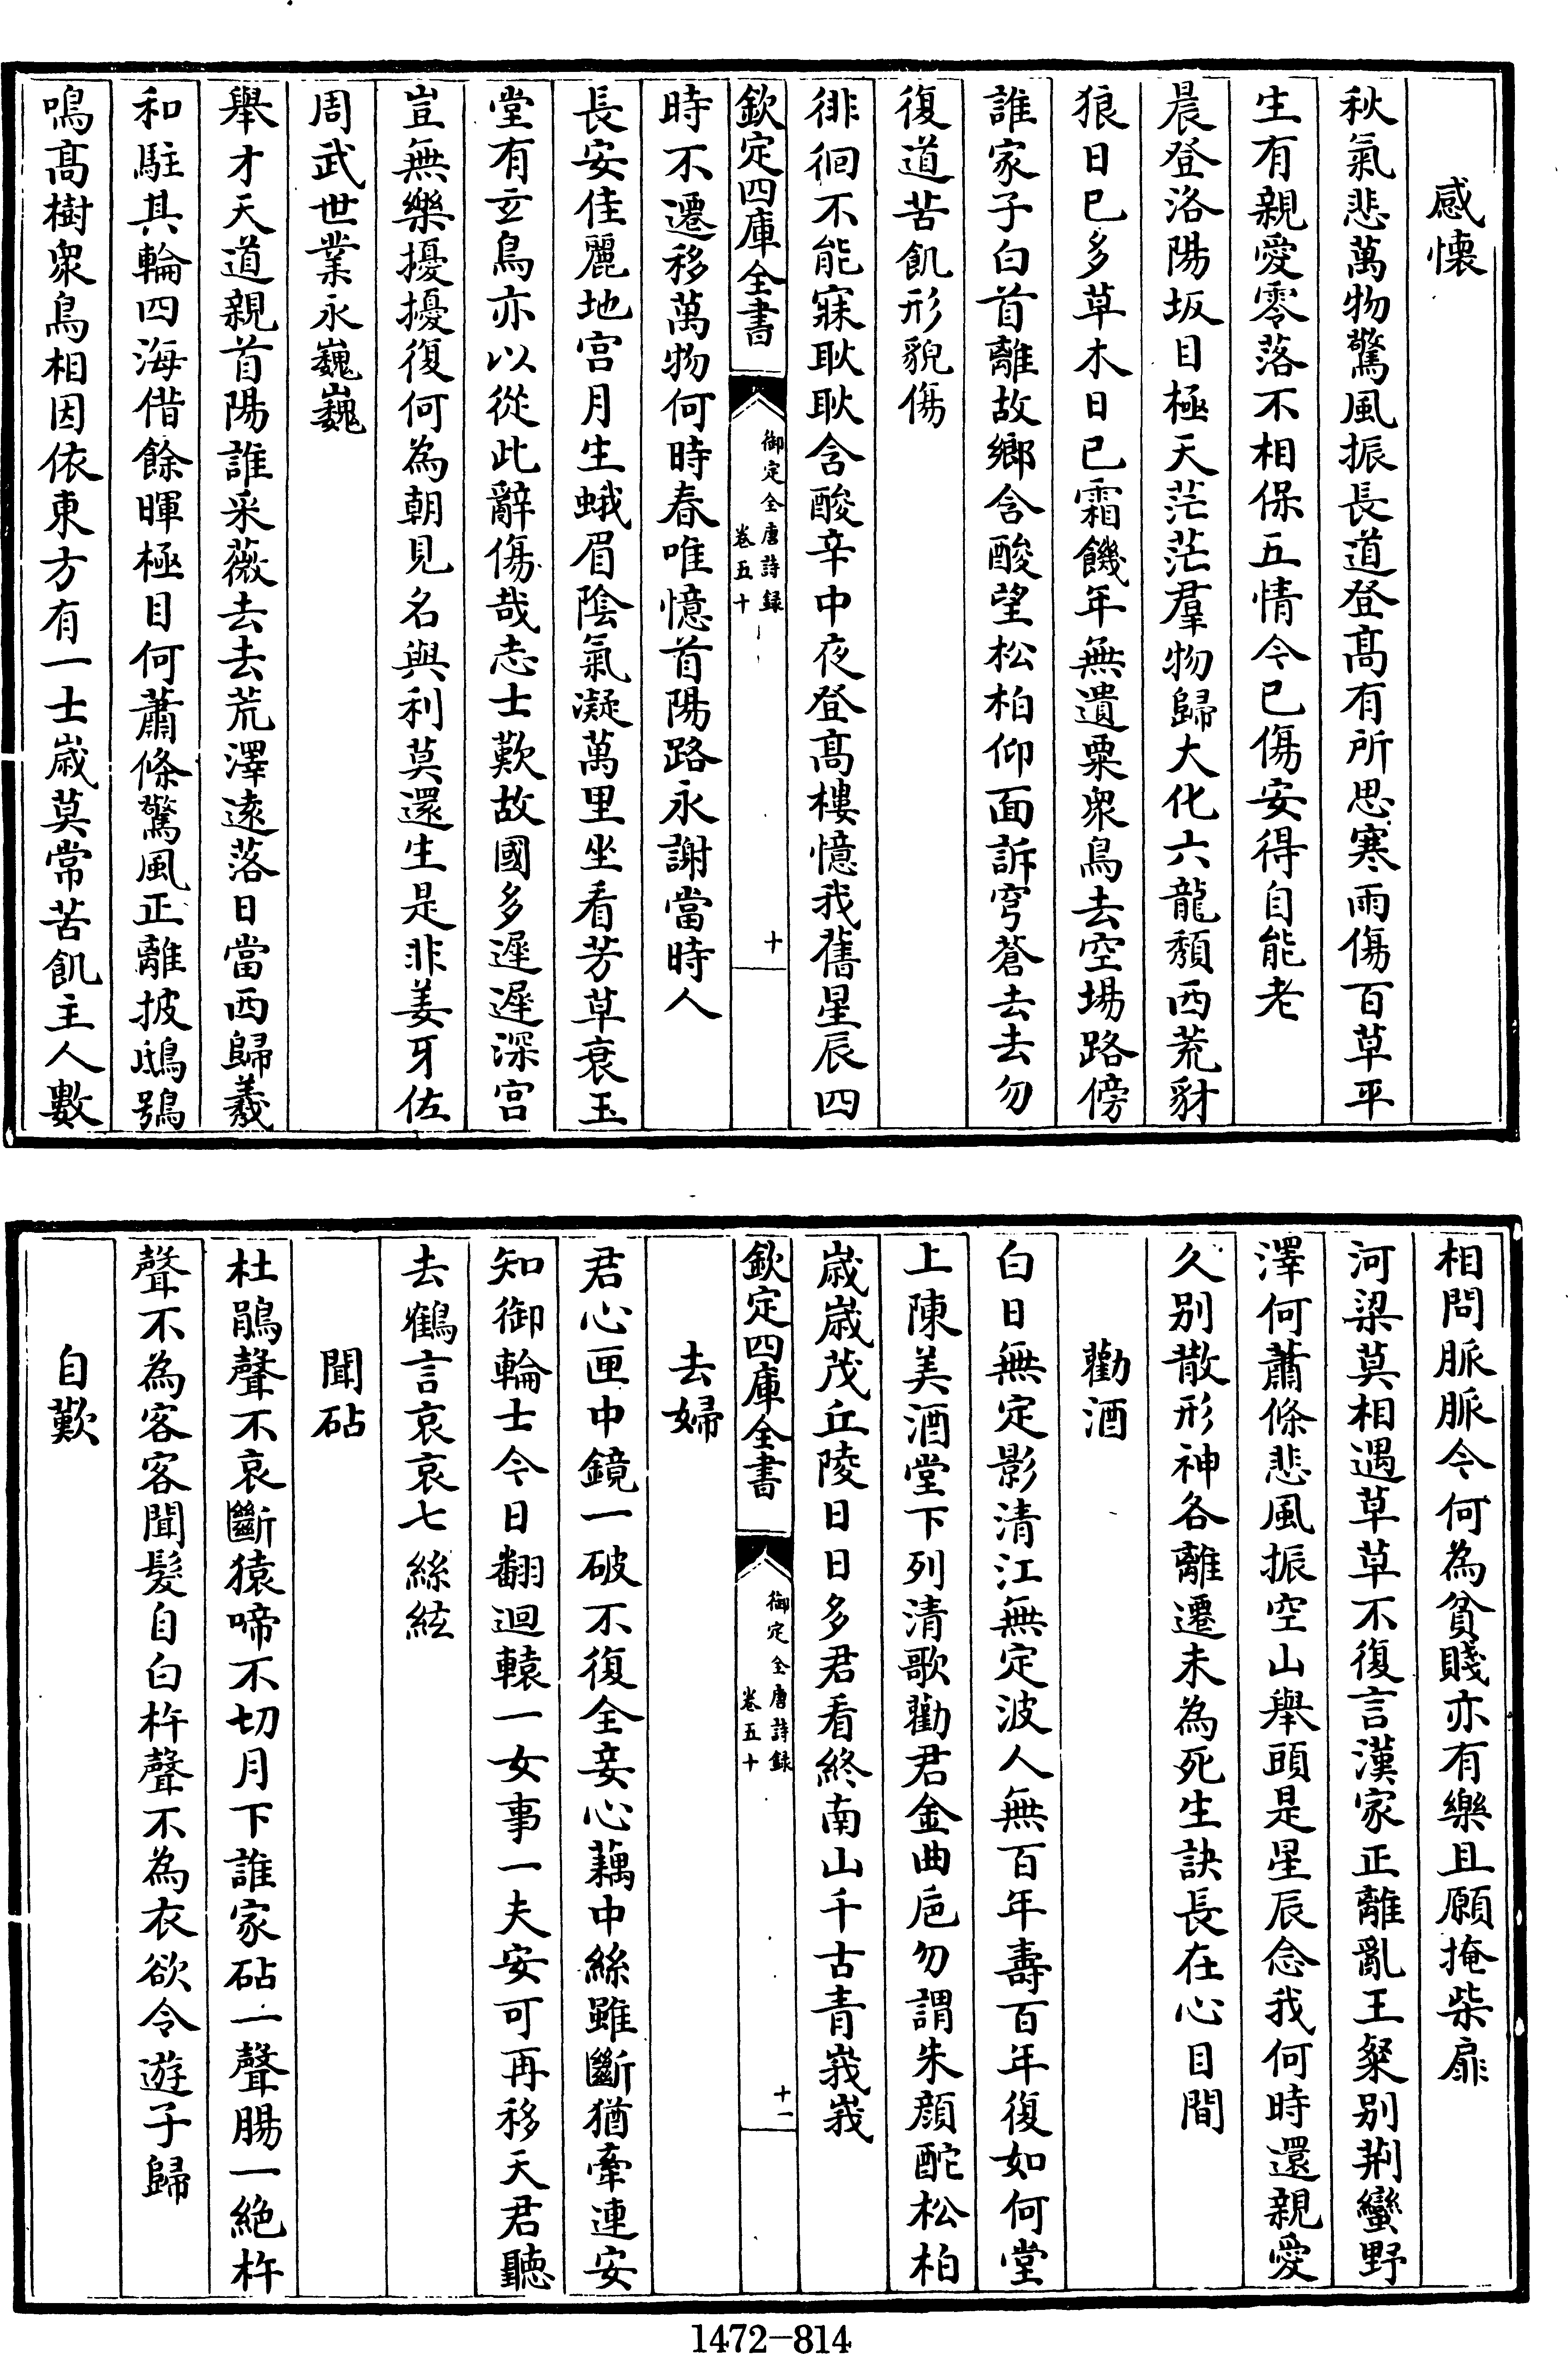 感懷
秋氣悲萬物驚風振長道登髙有所思寒雨傷百草平
生有親愛零落不相保五情今已傷安得自能老
晨登洛陽坂目極天茫茫羣物歸大化六龍頹西荒豺
狼日已多草木日已霜饑年無遺粟衆鳥去空場路傍
誰家子白首離故鄉含酸望松柏仰面訴穹蒼去去勿
復道苦飢形貌傷
徘徊不能寐耿耿含酸辛中夜登髙樓憶我舊星辰四
欽定四庫全書
御定全唐詩録
卷五十
十
時不遷移萬物何時春唯憶首陽路永謝當時人
長安佳麗地宫月生蛾眉陰氣凝萬里坐看芳草衰玉
堂有玄鳥亦以從此辭傷哉志士歎故國多遲遲深宫
豈無樂擾擾復何為朝見名與利莫還生是非姜牙佐
周武世業永巍巍
舉才天道親首陽誰采薇去去荒澤逺落日當西歸羲
和駐其輪四海借餘暉極目何蕭條驚風正離披鴟鴞
鳴髙樹衆鳥相因依東方有一士歲莫常苦飢主人數
相問脈脈今何為貧賤亦有樂且願掩柴扉
河梁莫相遇草草不復言漢家正離亂王粲别荆蠻野
澤何蕭條悲風振空山舉頭是星辰念我何時還親愛
久别散形神各離遷未為死生訣長在心目間
勸酒
白日無定影清江無定波人無百年壽百年復如何堂
上陳美酒堂下列清歌勸君金曲巵勿謂朱顔酡松柏
歲歲茂丘陵日日多君看終南山千古青峩峩
欽定四庫全書
御定全唐詩録
卷五十
十一
去婦
君心匣中鏡一破不復全妾心藕中絲雖斷猶牽連安
知御輪士今日翻迴轅一女事一夫安可再移天君聽
去鶴言哀哀七絲絃
聞砧
杜鵑聲不哀斷猿啼不切月下誰家砧一聲腸一絶杵
聲不為客客聞髮自白杵聲不為衣欲令遊子歸
自歎
1472-814